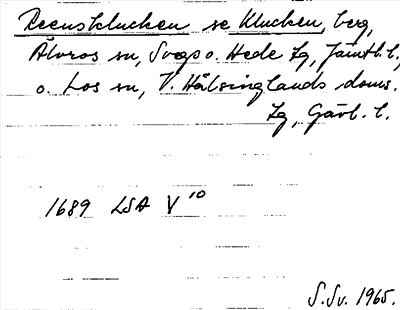 Reenskluchen se Klucken, berg,
Älvros sn, Svegs o. Hede tg, Jämtl. l.,
o. Los sn, V. Hälsinglands doms.
tg, Gävl. l.
1689 LSA V¹⁰
S. Sv. 1965.